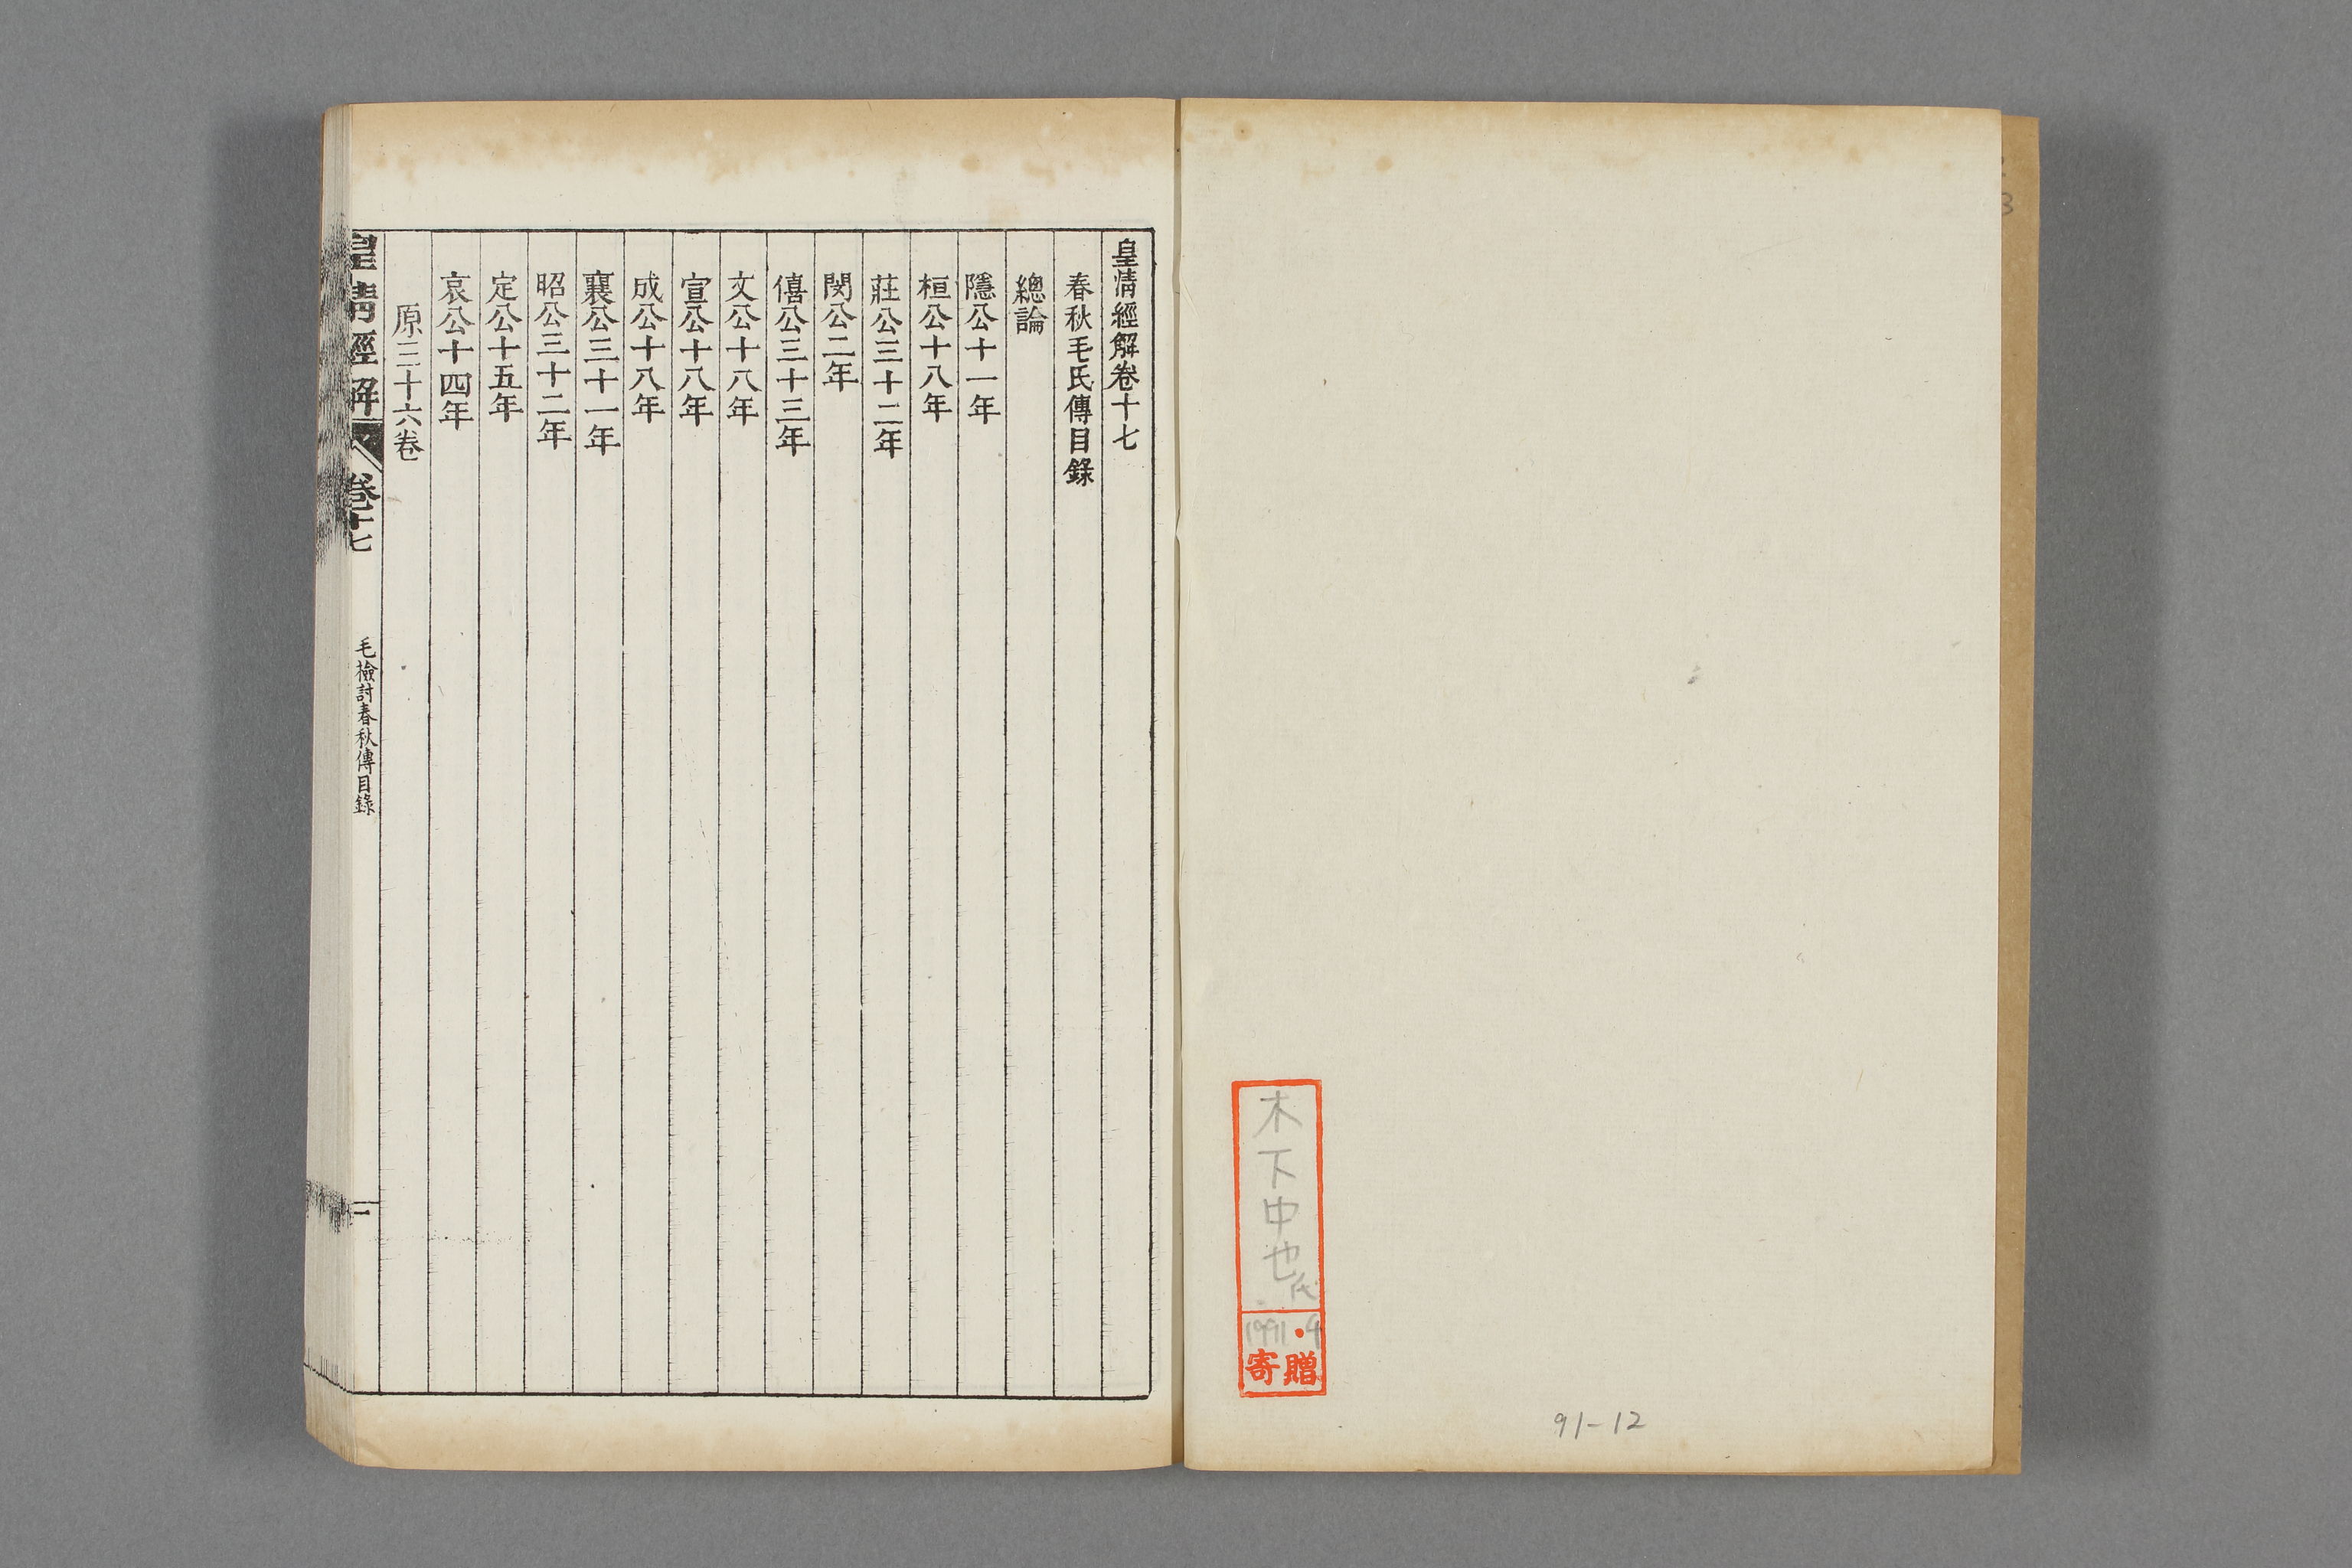 皇清經解卷十七
春秋毛氏傳目錄
總論
隱公十一年
桓公十八年
莊公三十二年
閔公二年
僖公三十三年
文公十八年
宣公十八年
成公十八年
襄公三十一年
昭公三十二年
定公十五年
哀公十四年
原三十六卷
皇清經解
卷十七
毛檢討春秋傳目錄
一
木下中也氏
1991・4
寄贈
91-12
3